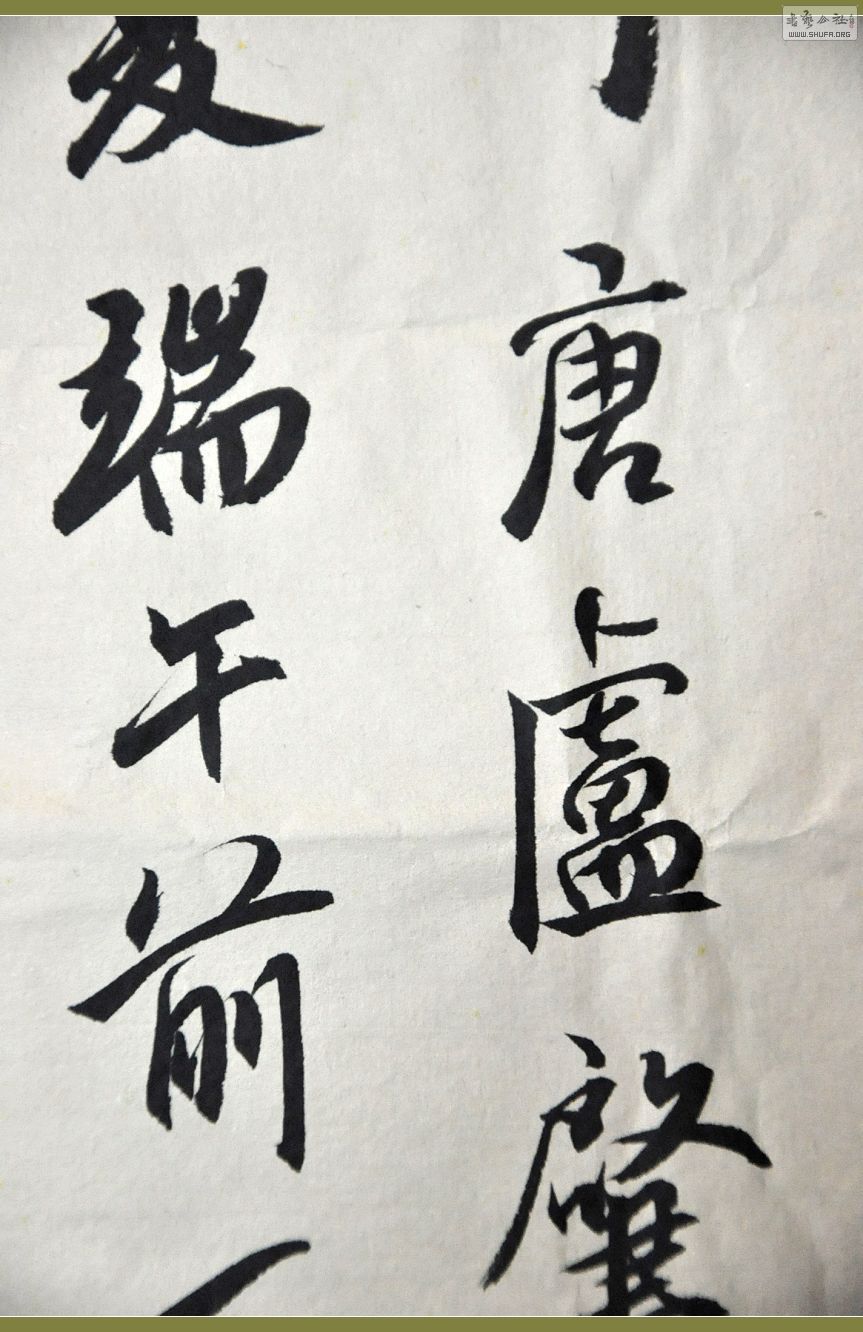 唐盧肇
端午前
书艺公社
WWW.SHUFA.ORG